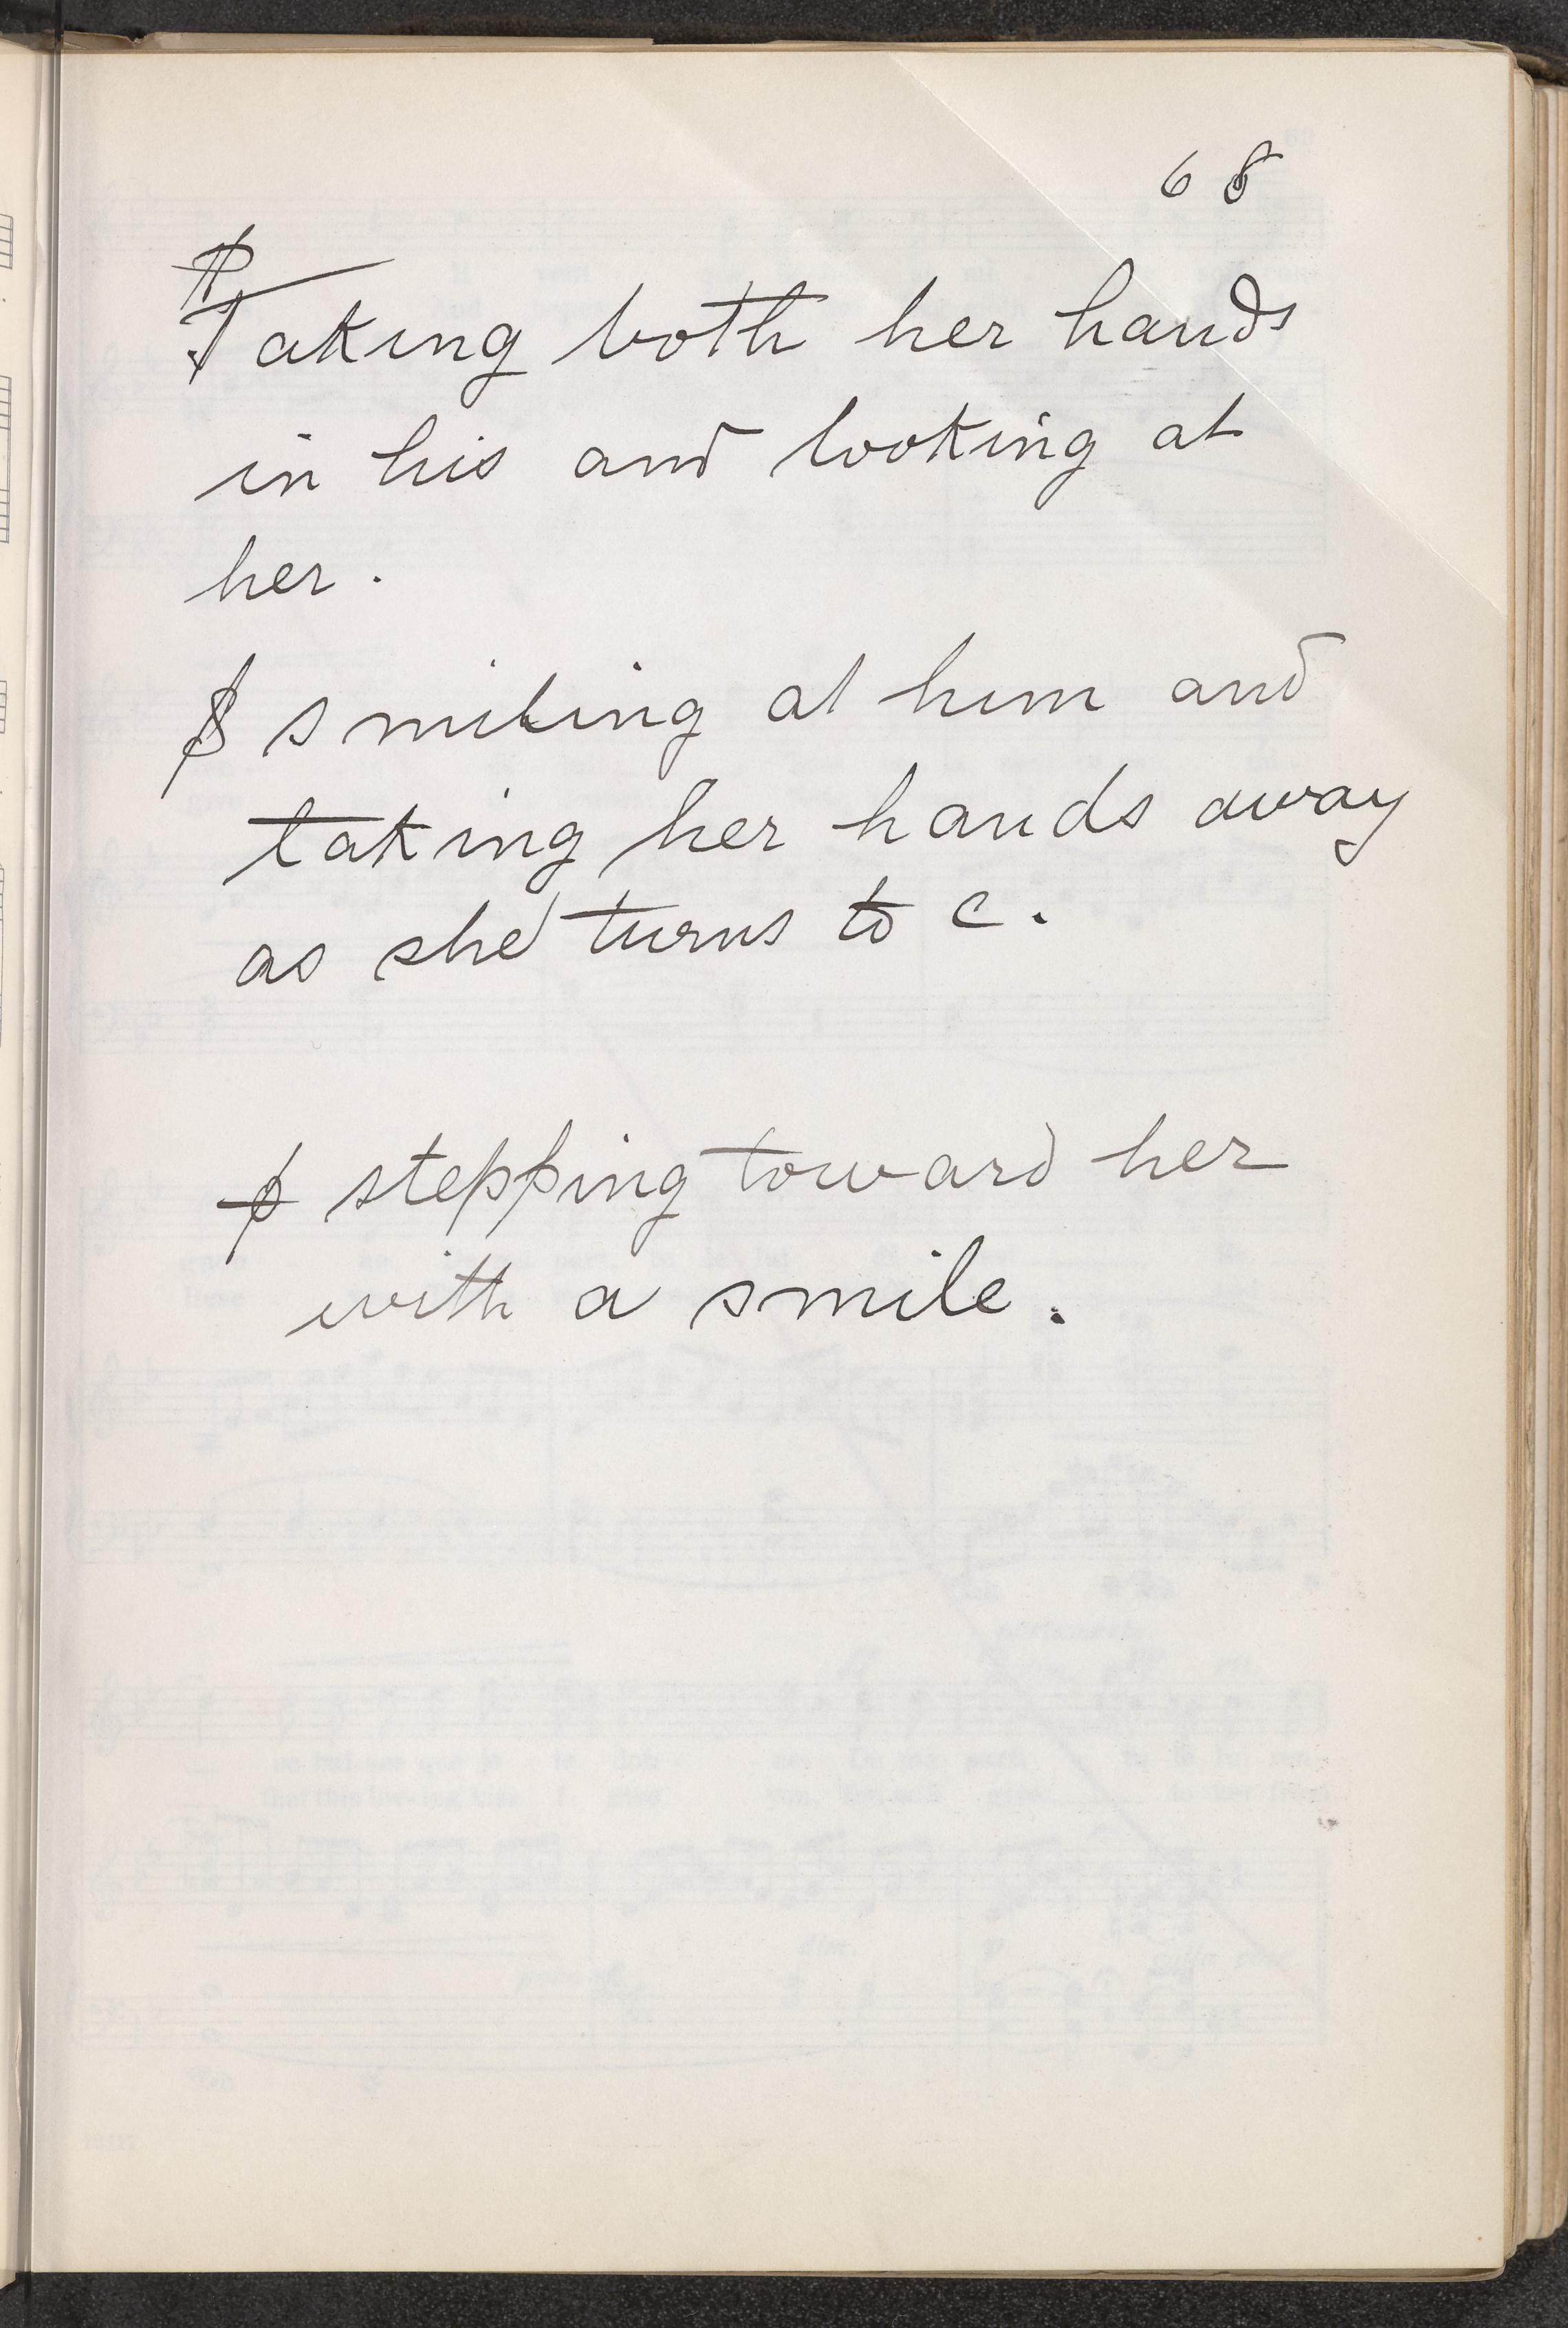 68
Taking both her hands
in his and looking at
her.
smiling at him and
taking her hands away
as she turns to C.
stepping toward her
with a smile.